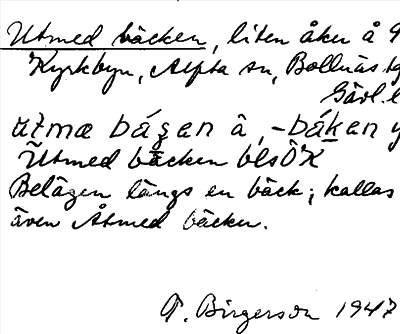 Utmed bäcken, liten åker å
Kyrkbyn, Alfta sn, Bollnäs tg
Gävl. l
Utmed bäcken blsÖK
Belägen längs en bäck; kallas
även Åtmed bäcken.
T. Birgerson 1947